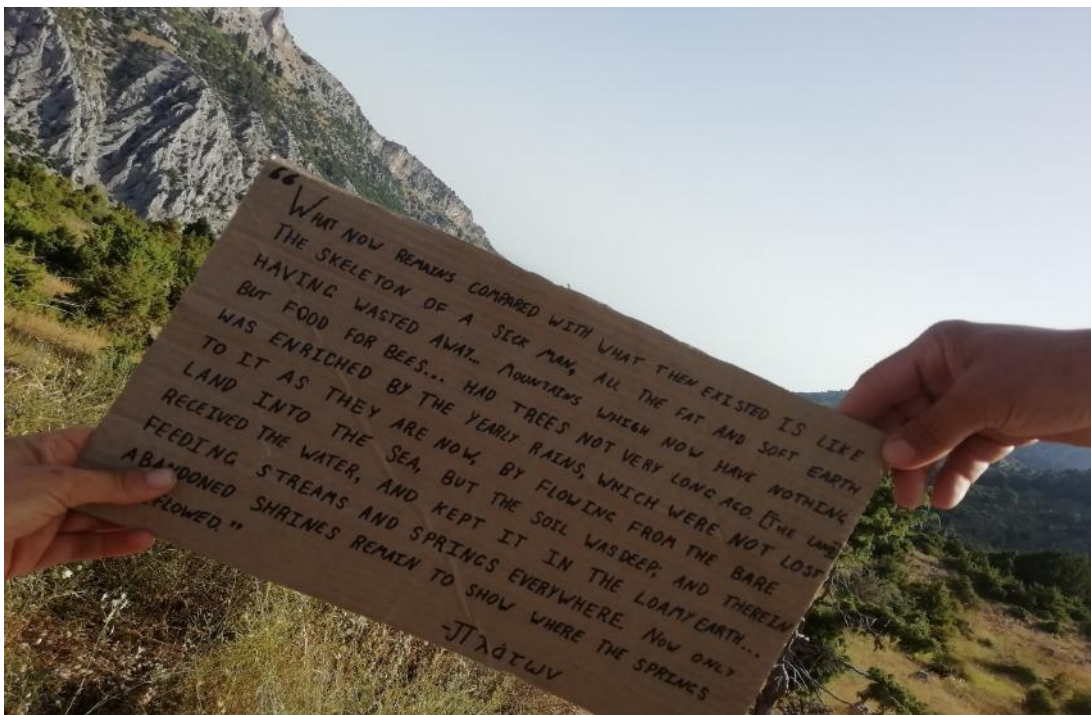 “WHAT NOW REMAINS COMPARED WITH WHAT THEN EXISTED IS LIKE
THE SKELETON OF A SICK MAN, ALL THE FAT AND SOFT EARTH
HAVING WASTED AWAY... MOUNTAINS WHICH NOW HAVE NOTHING
BUT FOOD FOR BEES... HAD TREES NOT VERY LONG AGO. [THE LAND]
WAS ENRICHED BY THE YEARLY RAINS, WHICH WERE NOT LOST
TO IT AS THEY ARE NOW, BY FLOWING FROM THE BARE
LAND INTO THE SEA, BUT THE SOIL WAS DEEP; AND THEREIN
RECEIVED THE WATER, AND KEPT IT IN THE LOAMY EARTH...
FEEDING STREAMS AND SPRINGS EVERYWHERE. NOW ONLY
ABANDONED SHRINES REMAIN TO SHOW WHERE THE SPRINGS
FLOWED.”
-Πλάτων